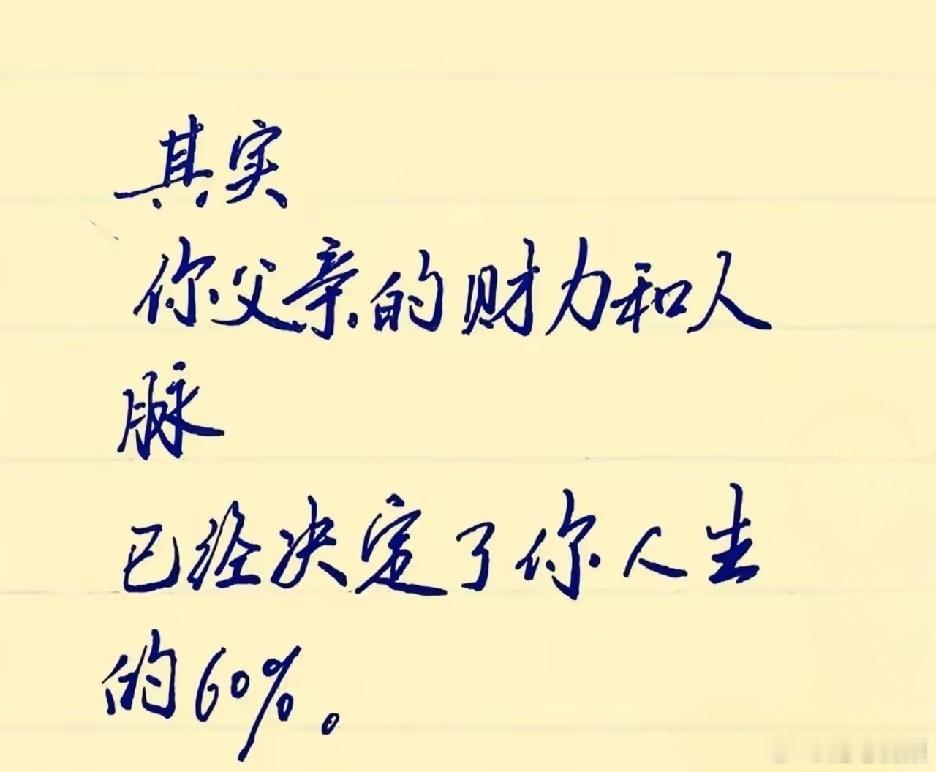 其实
你父亲的财力和人
脉
已经决定了你人生
的60%。